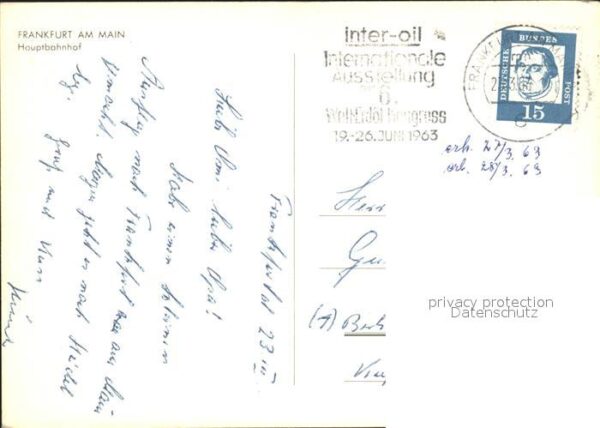 FRANKFURT AM MAIN
Hauptbahnhof
inter-oil
Internationale
Ausstellung
6.
Welt-Erdöl-Kongress
19.-26. JUNI 1963
FRANKFURT
DEUTSCHE BUNDESPOST
15
erh. 27/3. 63
erl. 28/3. 63
Frankfurt 23 III
Liebe Omi, liebe Opa!
Habe einen
Ausflug nach Frankfurt
gemacht. Morgen geht es nach Heidel
bg. Gruß und Kuss
Herr
(A)
privacy protection
Datenschutz